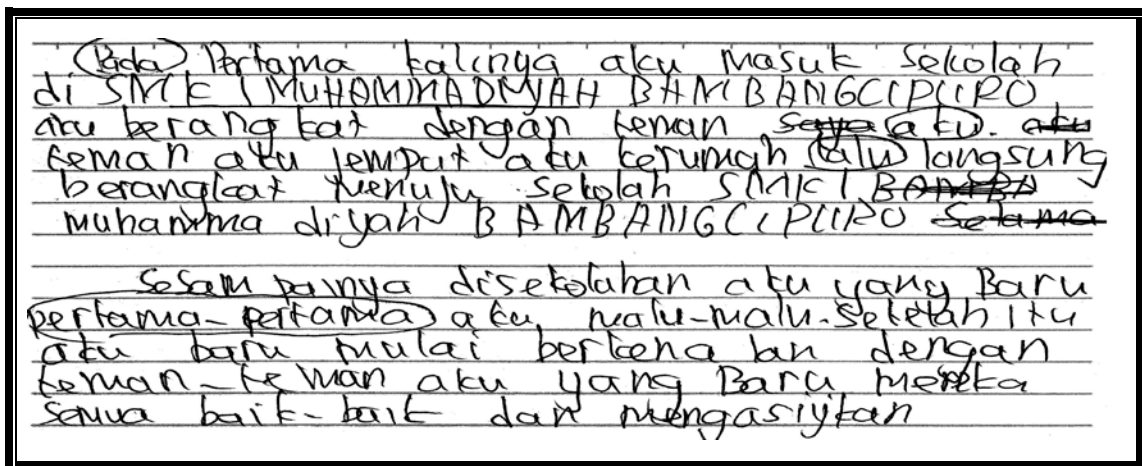 Pada Pertama kalinya aku masuk Sekolah
di SMK 1 MUHAMMADIYAH BAMBANGCIPURO
aku berangkat dengan teman saya aku. aku
teman aku jemput aku kerumah lalu langsung
berangkat menuju sekolah SMK 1 BAMBA
muhamma diyah BAMBANGCIPURO Selama
Sesam painya disekolahan aku yang Baru
pertama-pertama aku malu-malu. Setelah itu
aku baru mulai berkena lan dengan
teman-teman aku yang Baru mereka
semua baik-baik dan mengasiykan